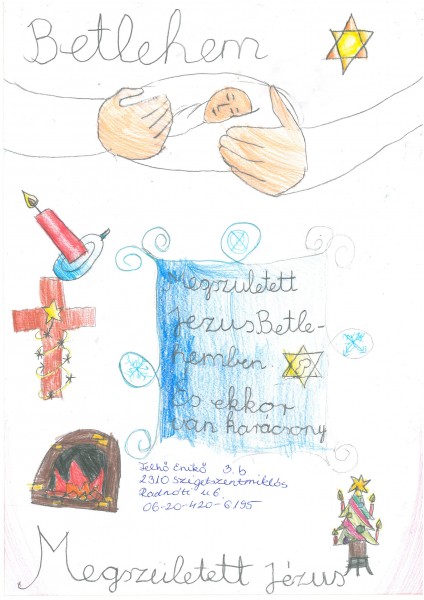 Betlehem
Megszületett
Jézus Betle-
hemben.
És ekkor
van karácsony
Telkő Enikő 3. b
2310 Szigetszentmiklós
Radnóti u 6.
06-20-420-6195
Megszületett Jézus